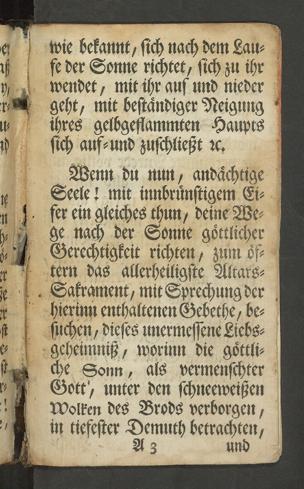 wie bekannt, sich nach dem Lau-
fe der Sonne richtet, sich zu ihr
wendet, mit ihr auf und nieder
geht, mit beständiger Neigung
ihres gelbgeflammten Haupts
sich auf- und zuschließt ꝛc.
Wenn du nun, andächtige
Seele! mit innbrünstigem Ei-
fer ein gleiches thun, deine We-
ge nach der Sonne göttlicher
Gerechtigkeit richten, zum öf-
tern das allerheiligste Altars-
Sakrament, mit Sprechung der
hierinn enthaltenen Gebethe, be-
suchen, dieses unermessene Liebs-
geheimniß, worinn die göttli-
che Sonn, als vermenschter
Gott, unter den schneeweißen
Wolken des Brods verborgen,
in tiefester Demuth betrachten,
A 3 und